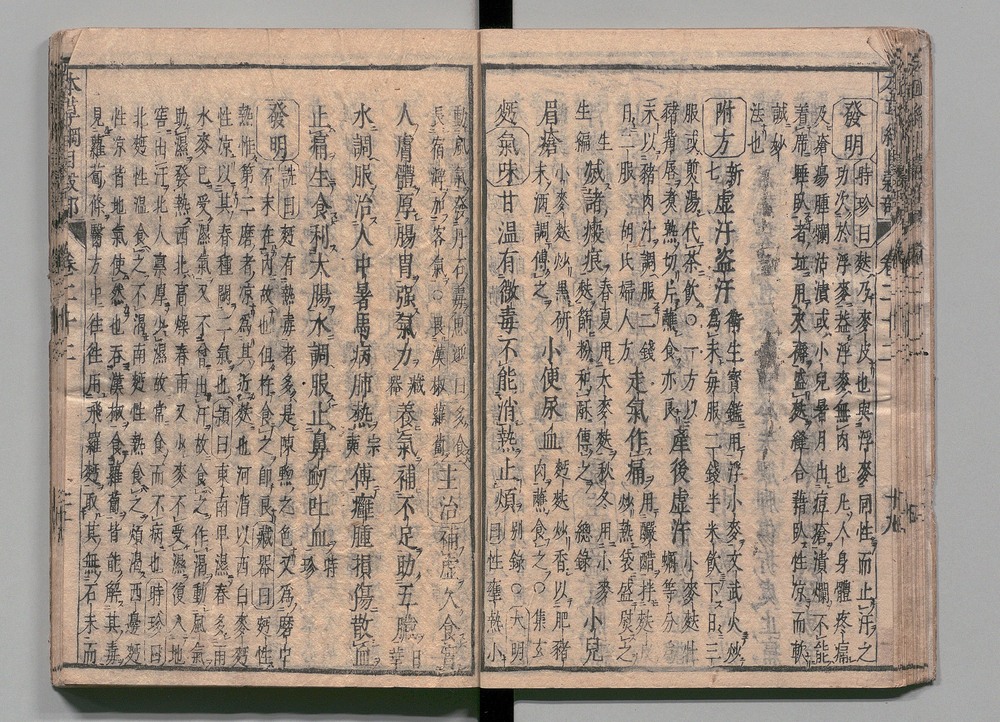 發明 時珍曰麩乃麥皮也與浮麥同性而止汗之
功次於浮麥蓋浮麥無肉也凡人身體疼痛
及瘡瘍腫爛沾漬或小兒暑月出痘瘡潰爛不能
着席睡臥者並用夾褥盛麩縫合藉臥性涼而軟
誠妙
法也
附方 新七 虛汗盜汗 衛生寶鑑用浮小麥文武火炒
為末每服二錢半米飲下日三
服或煎湯代茶飲○一方以
豬觜唇煮熟切片蘸食亦良 產後虛汗 小麥麩牡
蠣等分為
末以豬肉汁調服二錢
日二服 胡氏婦人方 走氣作痛 用釅醋拌麩皮
炒熱袋盛熨之
生編 滅諸瘢痕 春夏用大麥麩秋冬用小麥
麩篩粉和酥傅之 總錄 小兒
眉瘡 小麥麩炒黑研
末酒調傅之 小便尿血 麪麩炒香以肥豬
肉蘸食之○集玄
麪 氣味 甘溫有微毒不能消熱止煩 別錄○大明
曰性壅熱小
動風氣發丹石毒 曰多食
長宿澼加客氣○畏漢椒蘿蔔 主治 補虛久食實
人膚體厚腸胃强氣力 藏器 養氣補不足助五臟 日華
水調服治人中暑馬病肺熱 宗奭 傅癰腫損傷散血
止衂生食利大腸水調服止鼻衂吐血 時珍
發明 詵曰麪有熱毒者多是陳黦之色又為磨中
石末在內故也但杵食之即良藏器曰麪性
熱惟第二磨者涼為其近麩也河渭以西白麥麪
性涼以其春種闕二氣也穎曰東南卑濕春多雨
水麥已受濕氣又不曾出汗故食之作渴動風氣
助濕發熱西北高燥春雨又少麥不受濕復入地
窖出汗北人稟厚少濕故常食而不病也時珍曰
北麪性溫食之不渴南麪性熱食之煩渴西邊麪
性涼皆地氣使然也吞漢椒食蘿蔔皆能解其毒
見蘿蔔條醫方中往往用飛羅麪取其無石末而
本草綱目穀部 卷二十二
十九